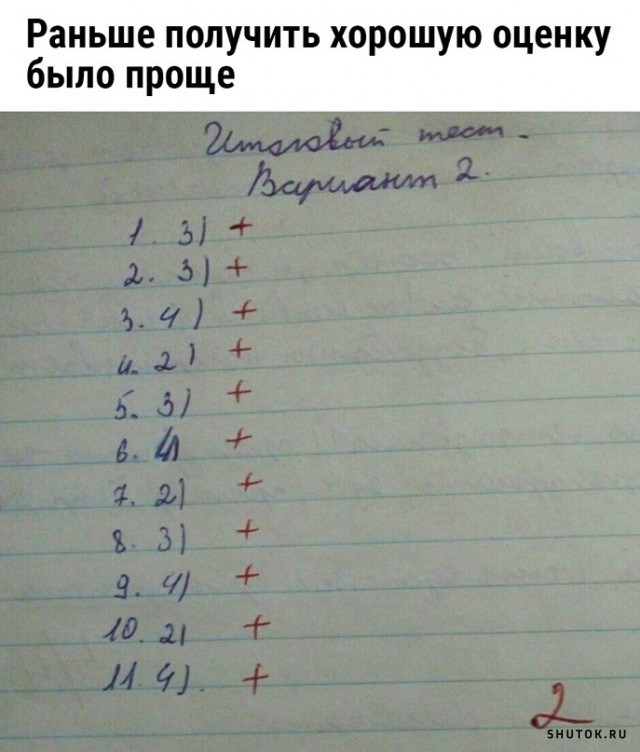 Раньше получить хорошую оценку
было проще
Итоговый тест.
Вариант 2.
1. 3) +
2. 3) +
3. 4) +
4. 2) +
5. 3) +
6. 4) +
7. 2) +
8. 3) +
9. 4) +
10. 2) +
11. 4). +
2
SHUTOK.RU